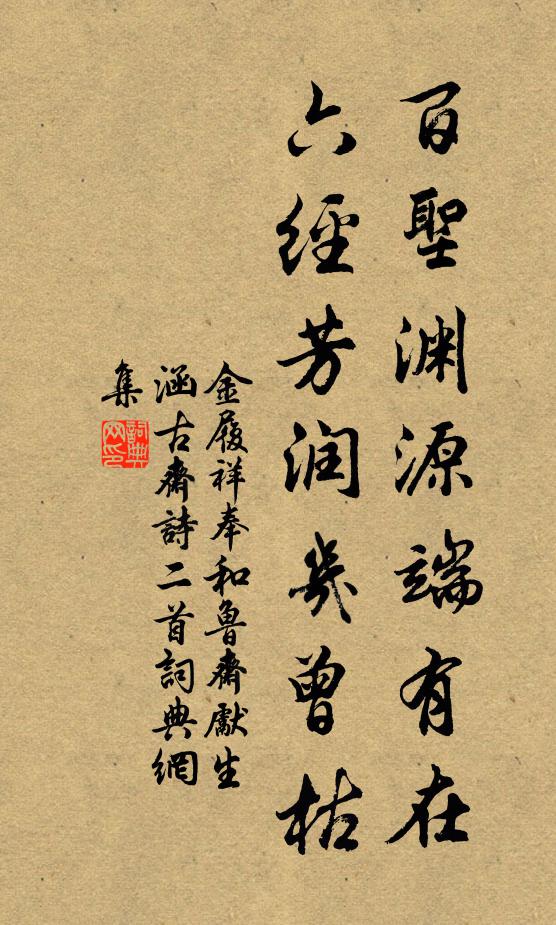 百聖渊源端有在
六經芳润幾曾枯
金履祥奉和鲁齋獻生
涵古齋詩二首詞典網
集
詞典
网印